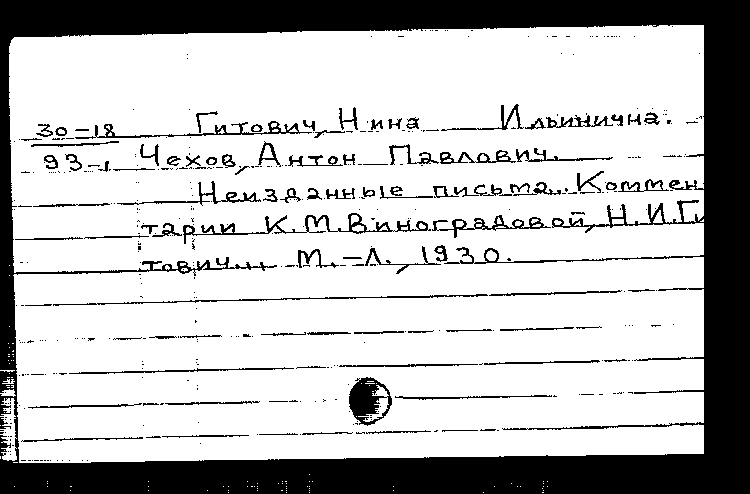 30-18 Гитович, Нина Ильинична.
93-1 Чехов, Антон Павлович.
Неизданные письма... Коммен
тарии К.М.Виноградовой, Н.И.Ги
тович... М.-Л., 1930.